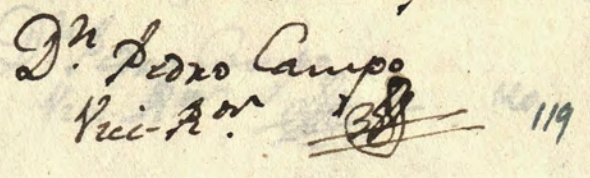 Dn. Pedro Campo
Vice-Ror. 119